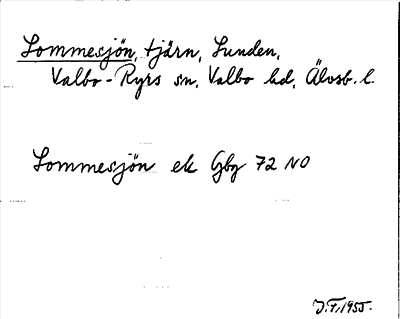 Lommesjön, tjärn, Lunden,
Valbo-Ryrs sn, Valbo hd, Älvsb. l.
Lommesjön ek Gbg 72 NO
J.F. 1955.